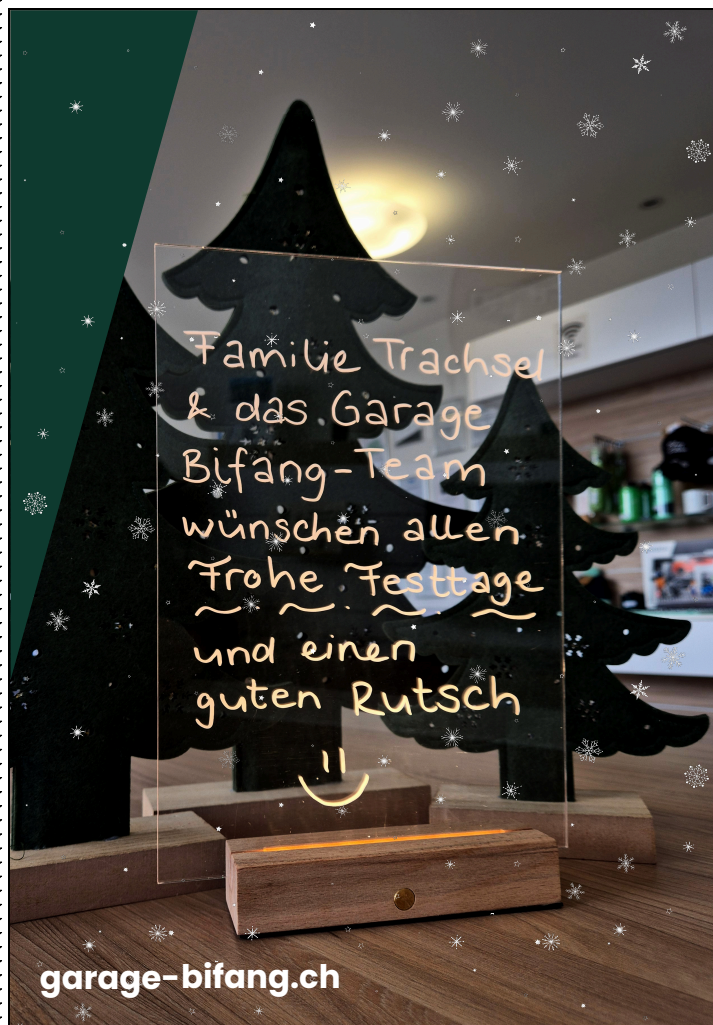 Familie Trachsel
& das Garage
Bifang-Team
wünschen allen
Frohe Festtage
und einen
guten Rutsch
garage-bifang.ch